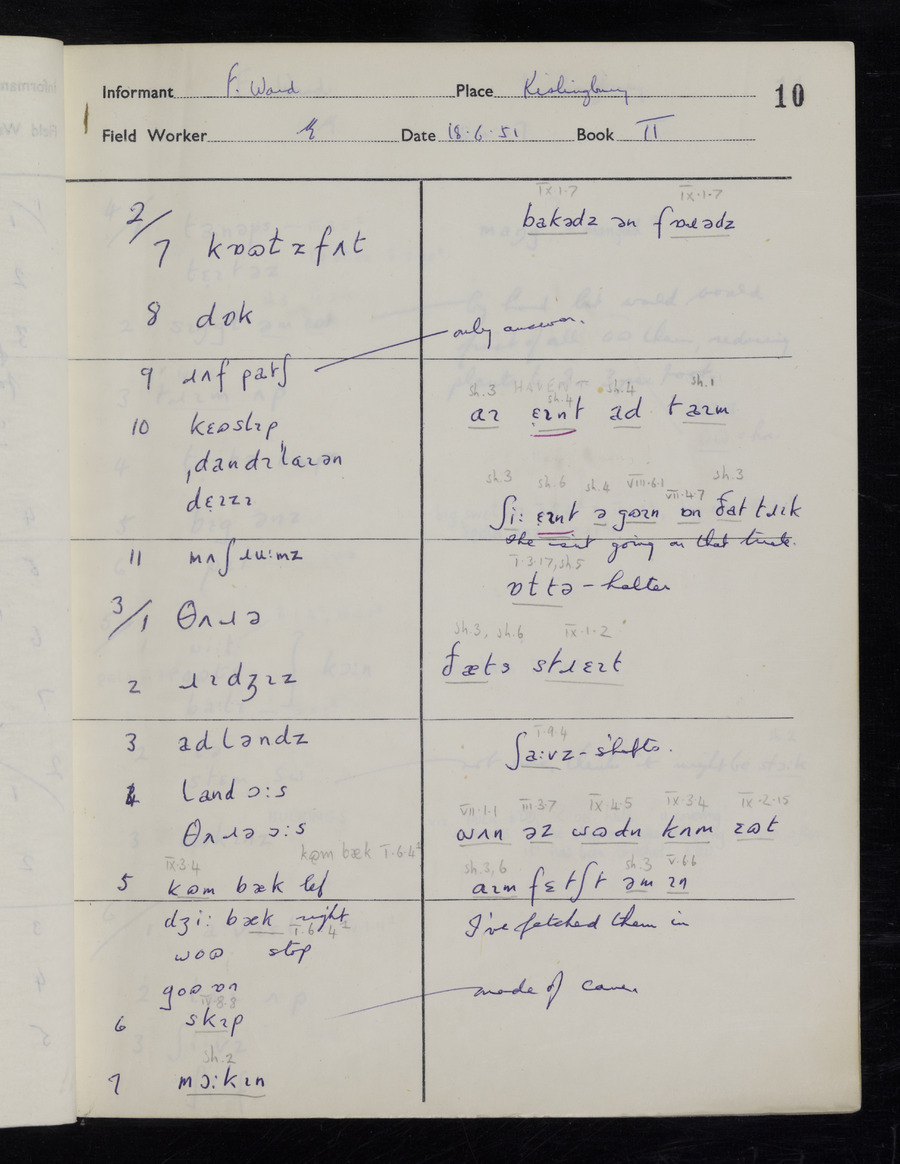 Informant F. Ward Place Kislingbury 10
Field Worker Date 18.6.51 Book II
2/7 kɒɷtsfʌt
8 dɒk
9 ɹʌf patʃ
10 kɛɷslɪp
ˌdandɪˈlaɪən
dɛɪzɪ
11 mʌʃɹuːmz
3/1 θʌɹə
2 ɹɪdʒɪz
3 adləndz
4 land ɔːs
θʌɹə ɔːs
kɷm bæk I.6.4²
IX.3.4
5 kɷm bæk lef
dʒiː bæk right
I.6.4²
wɒɷ stop
gɒɷ ɒn
IV.8.8
6 skɪp
sh.2
7 mɔːkɪn
IX.1.7 IX.1.7
bakədz ən fɒɹədz
only answer.
sh.3 sh.4 sh.4 sh.1
aɪ ɛɪnt ad taɪm
sh.3 sh.6 sh.4 VIII.6.1 VII.4.7 sh.3
ʃiː ɛɪnt ə gɒɪn ɒn ðat tɹɪk
she isn't going on that
I.3.17, sh.5
ɒltə - halter
sh.3, sh.6 IX.1.2
ðæts stɹɛɪt
I.9.4
ʃaːvz - shafts.
VII.1.1 III.3.7 IX.4.5 IX.3.4 IX.2.15
ɷʌn əz wɷdn kʌm ɪɷt
sh.3,6 sh.3 V.6.6
aɪm fɛtʃt əm ɪn
I've fetched them in
made of cane